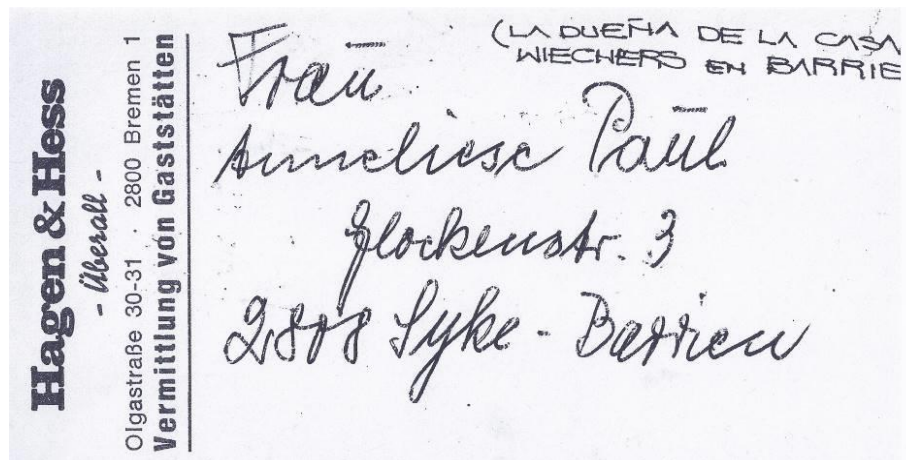 Hagen & Hess
- Überall -
Olgastraße 30-31 · 2800 Bremen 1
Vermittlung von Gaststätten
(LA DUEÑA DE LA CASA
WIECHERS EN BARRIE
Frau
Anneliese Paul
Glockenstr. 3
2808 Syke - Barrien